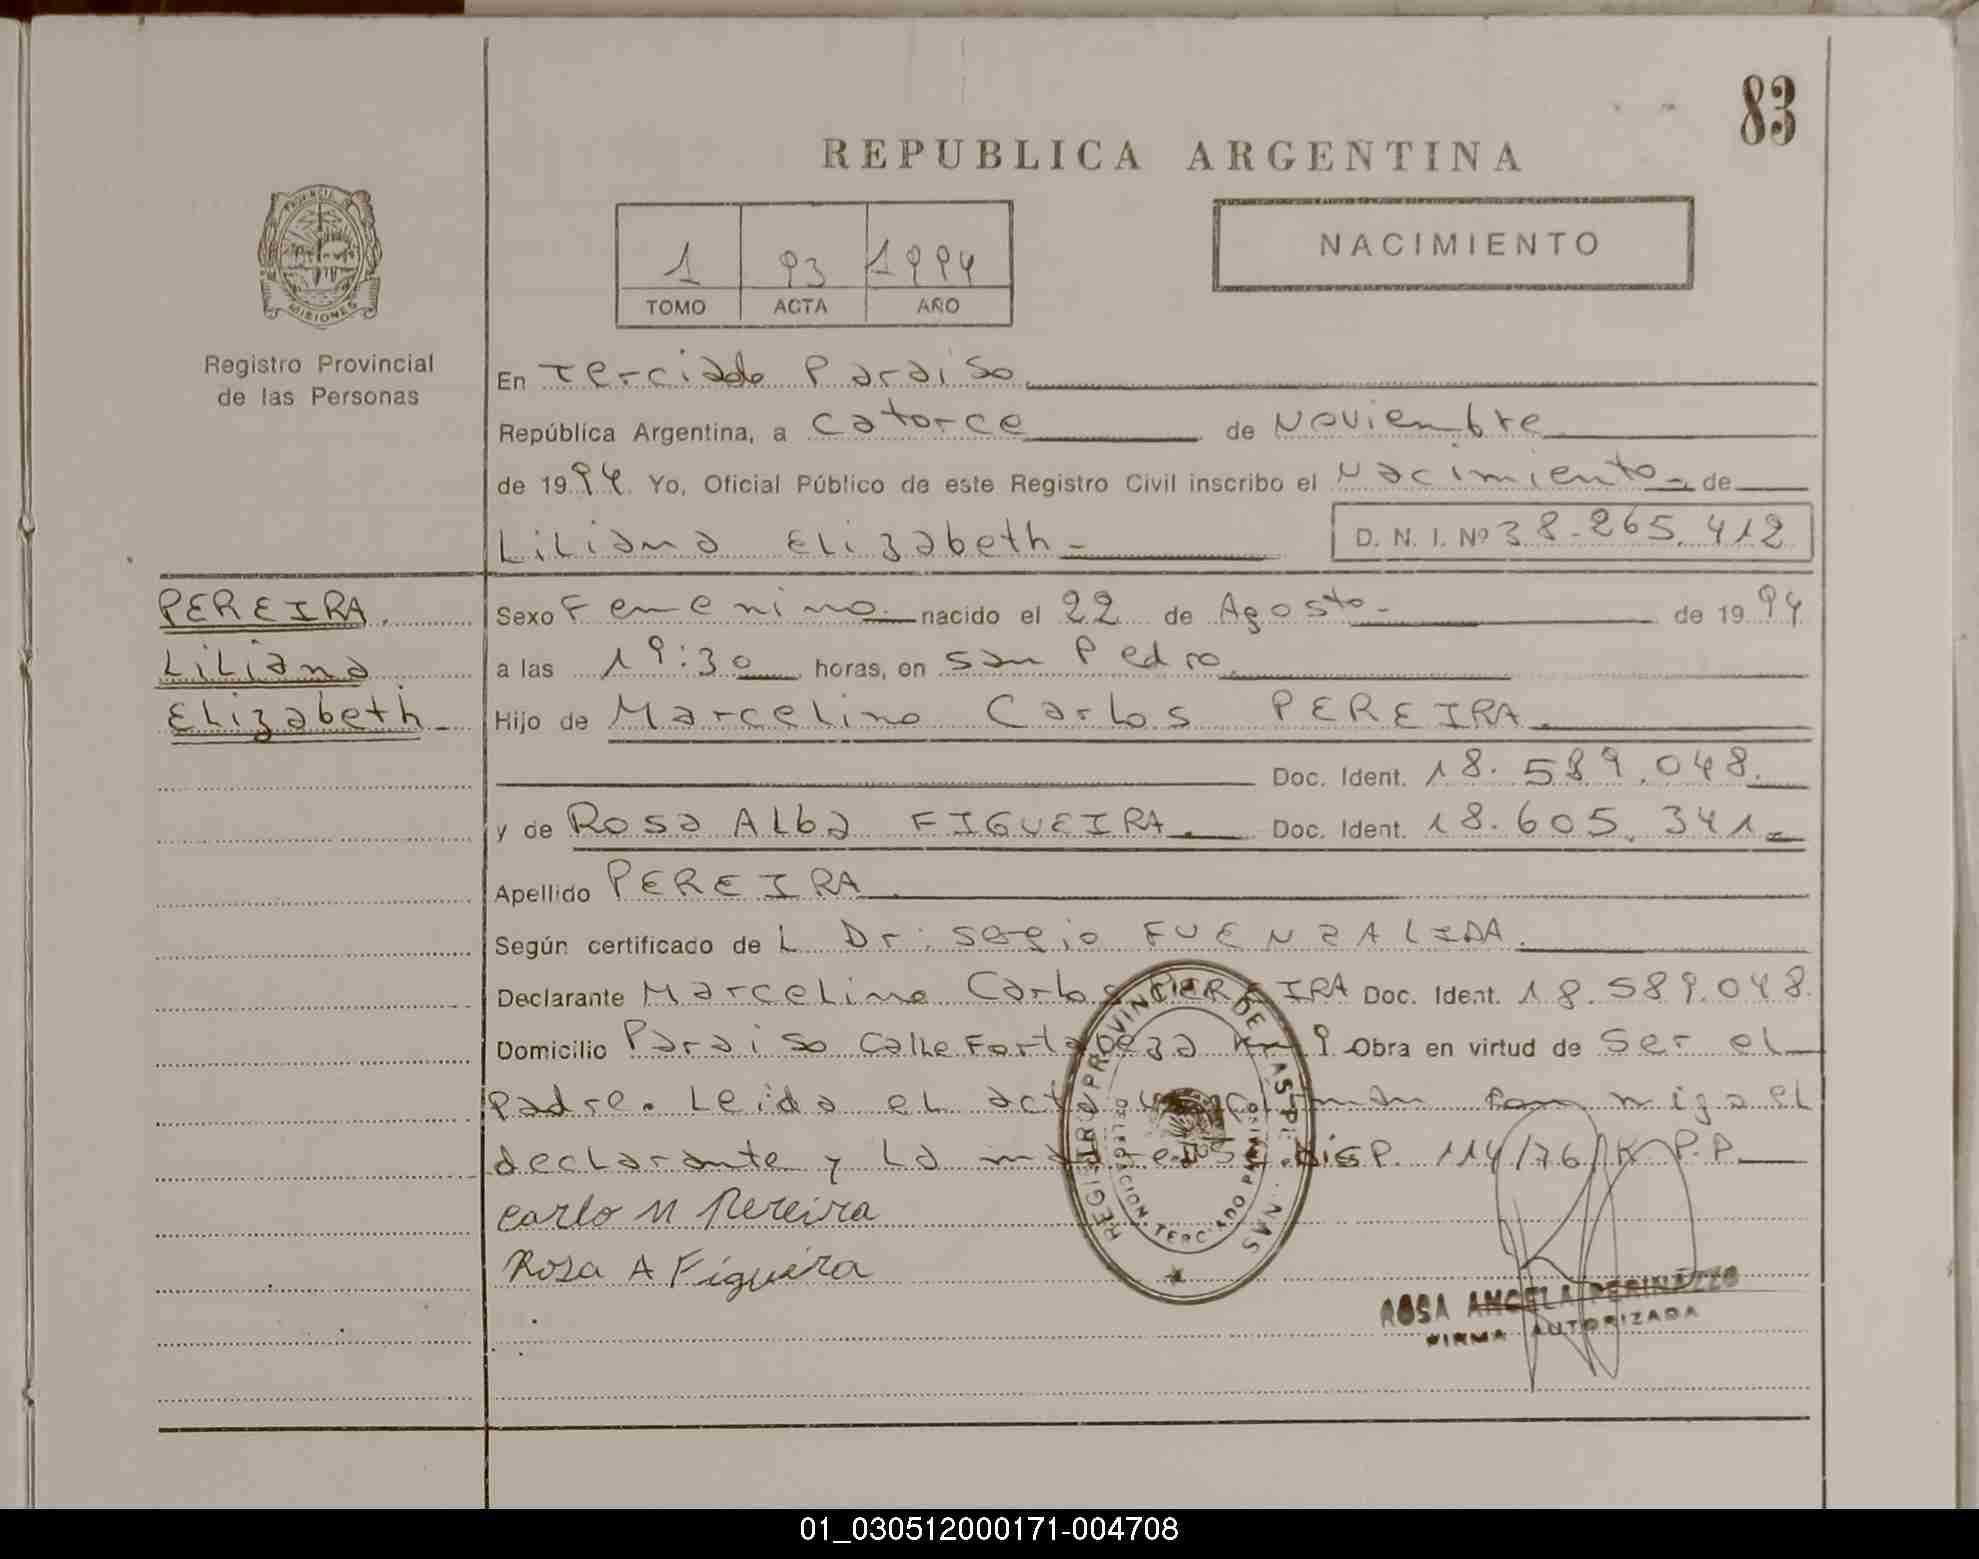 83
REPUBLICA ARGENTINA
NACIMIENTO
1 93 1994
TOMO ACTA AÑO
MISIONES
Registro Provincial
de las Personas
En Terciado Paraiso
República Argentina, a catorce de Noviembre
de 1994. Yo, Oficial Público de este Registro Civil inscribo el Nacimiento de
Liliana Elizabeth - D. N. I. Nº 38.265.412
PEREIRA.
Liliana
Elizabeth -
Sexo Femenino nacido el 22 de Agosto- de 1994
a las 19:30 horas, en San Pedro
Hijo de Marcelino Carlos PEREIRA.
Doc. Ident. 18.589.048.
y de Rosa Alba FIGUEIRA. Doc. Ident. 18.605.341-
Apellido PEREIRA.
Según certificado de L Dr: Sergio FUENZALIDA.
Declarante Marcelino Carlos PEREIRA Doc. Ident. 18.589.048.
Domicilio Paraiso Calle Fortaleza Km 9 Obra en virtud de ser el
padre. Leida el acta firman miga el
declarante y La madre disp. 114/76/K P.P.
Carlo M Pereira
Rosa A Figueira
REGISTRO PROVINCIAL DE LAS PERSONAS
DELEGACION TERCIADO PARAISO
ROSA ANGELA PERINAZZO
FIRMA AUTORIZADA
01_030512000171-004708